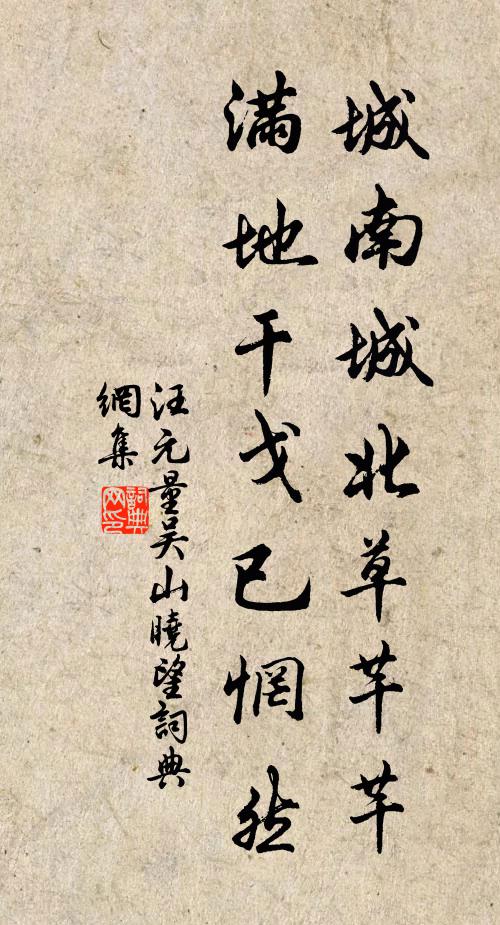 城南城北草芊芊
满地干戈已惘然
汪元量吴山曉望詞典
網集
詞典
网印